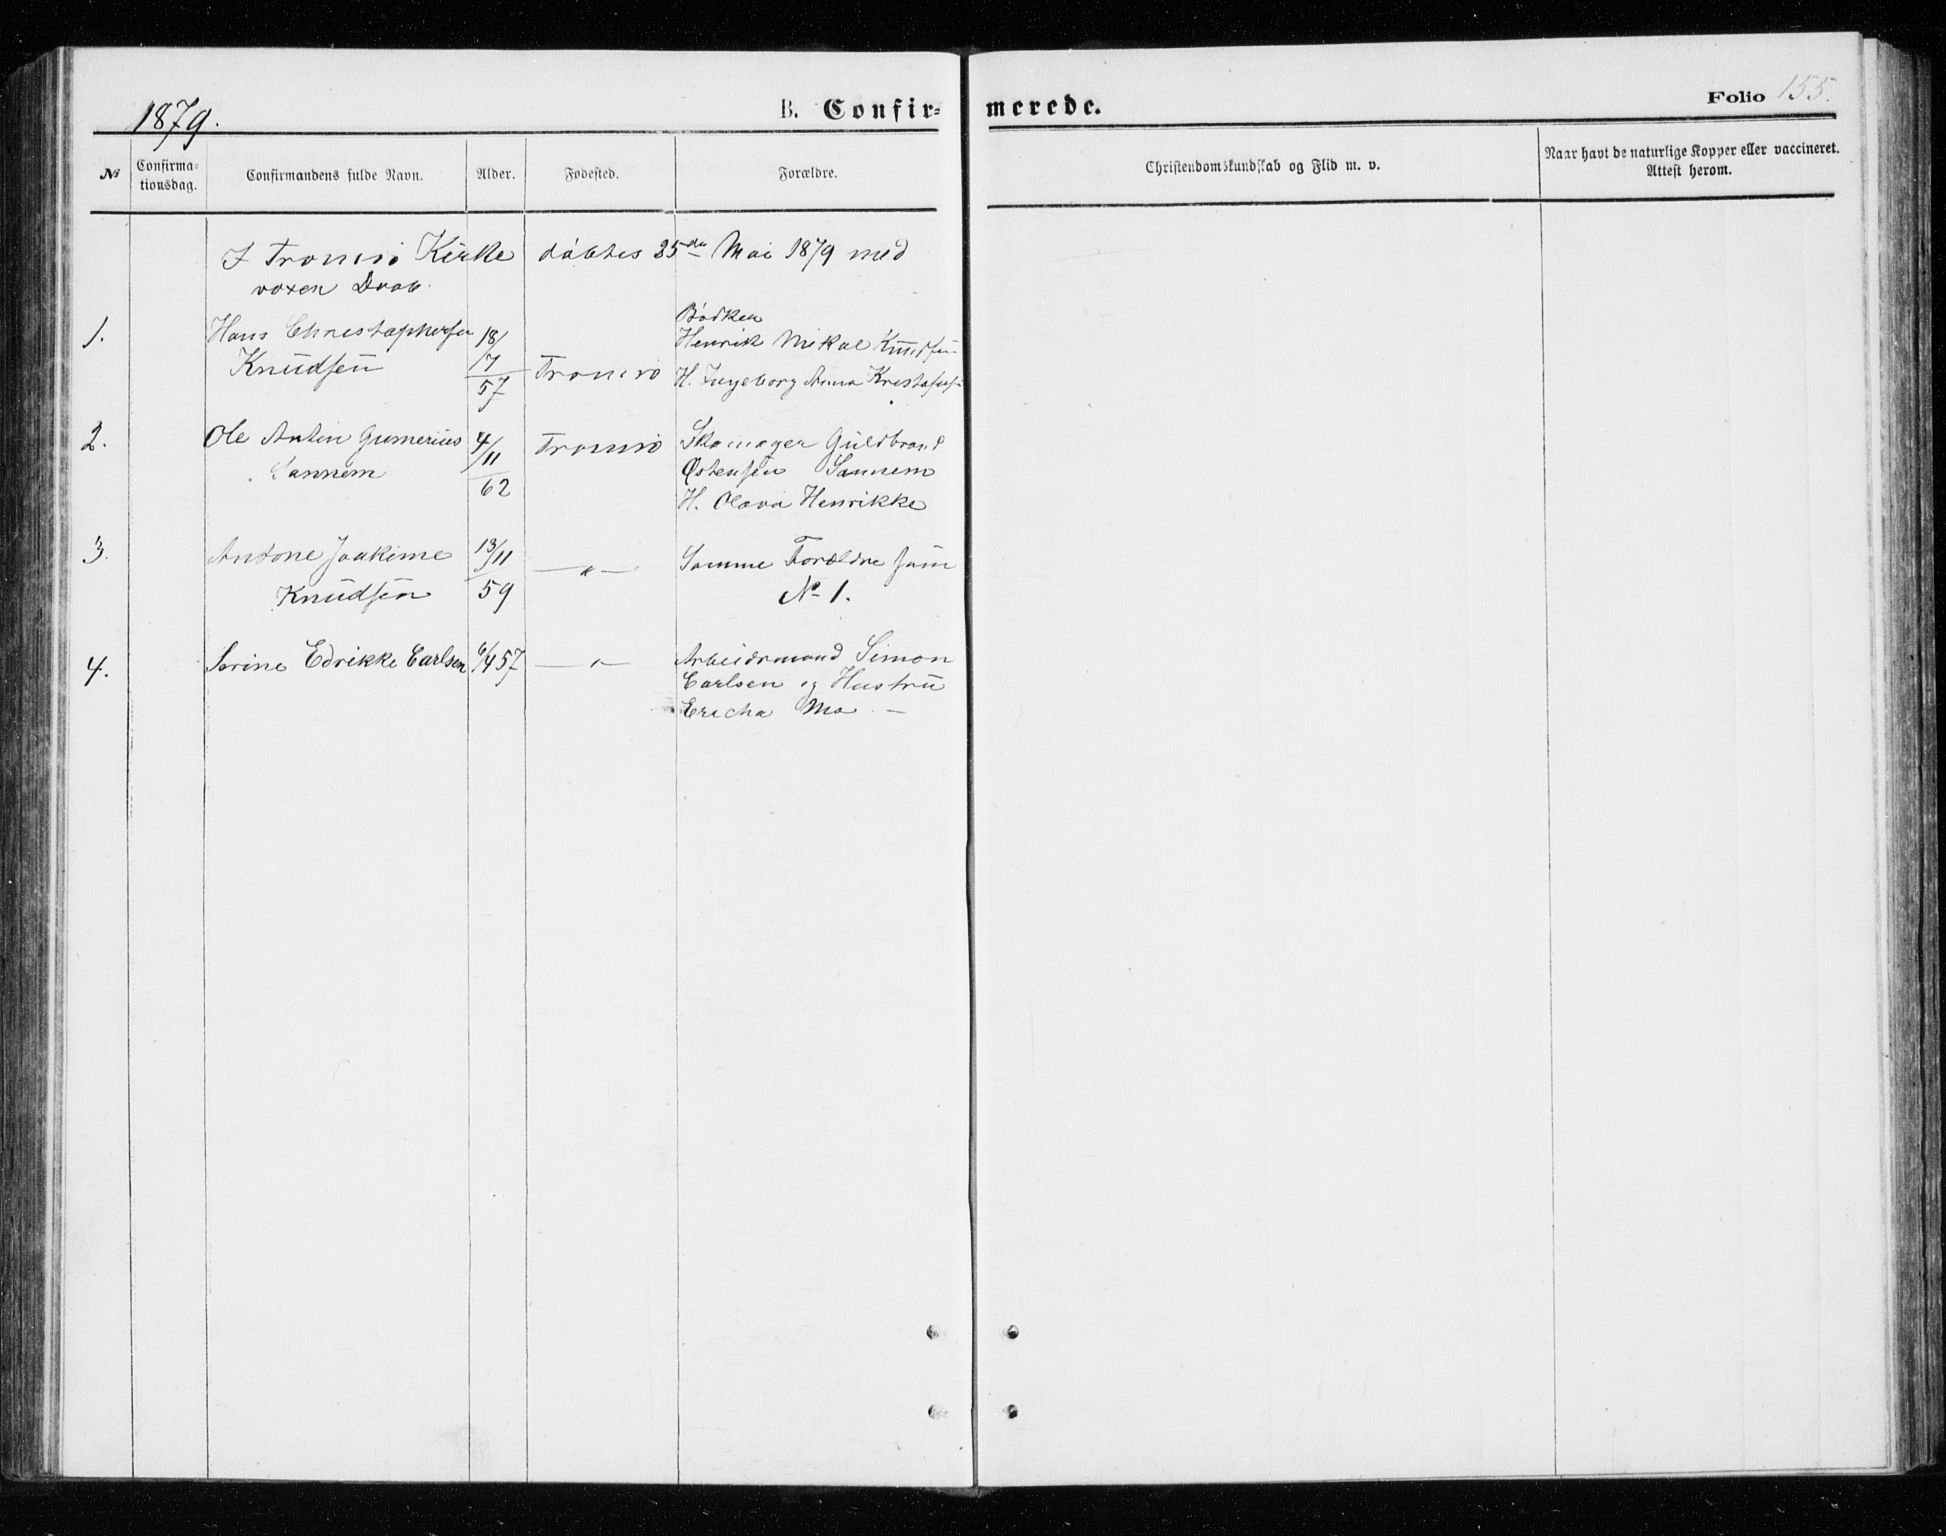 1879.
B. Confir-
merede.
Folio 155.
No
Confirma-
tionsdag.
Confirmandens fulde Navn.
Alder.
Fødested.
Forældre.
Christendomskundskab og Flid m. v.
Naar havt de naturlige Kopper eller vaccineret.
Attest herom.
I Tromsö Kirke döbtes 25de Mai 1879 med
voxen Daab.
1.
Hans Christophersen
Knudsen
18/7
57
Tromsö
Bödker
Henrik Mikal Knudsen
H. Ingeborg Anna
2.
Ole Antin Gumerius
Sannem
4/11
62
Tromsö
Skomager Guldbrand
Østensen Sannem
H. Olava Henrikke
3.
Antone Joakime
Knudsen
13/11
59
— " —
Samme Forældre som
No 1.
4.
Serine Edrikke Carlsen
6/4 57
— " —
Arbeidsmand Simon
Carlsen og Hustru
Ericha Mo —